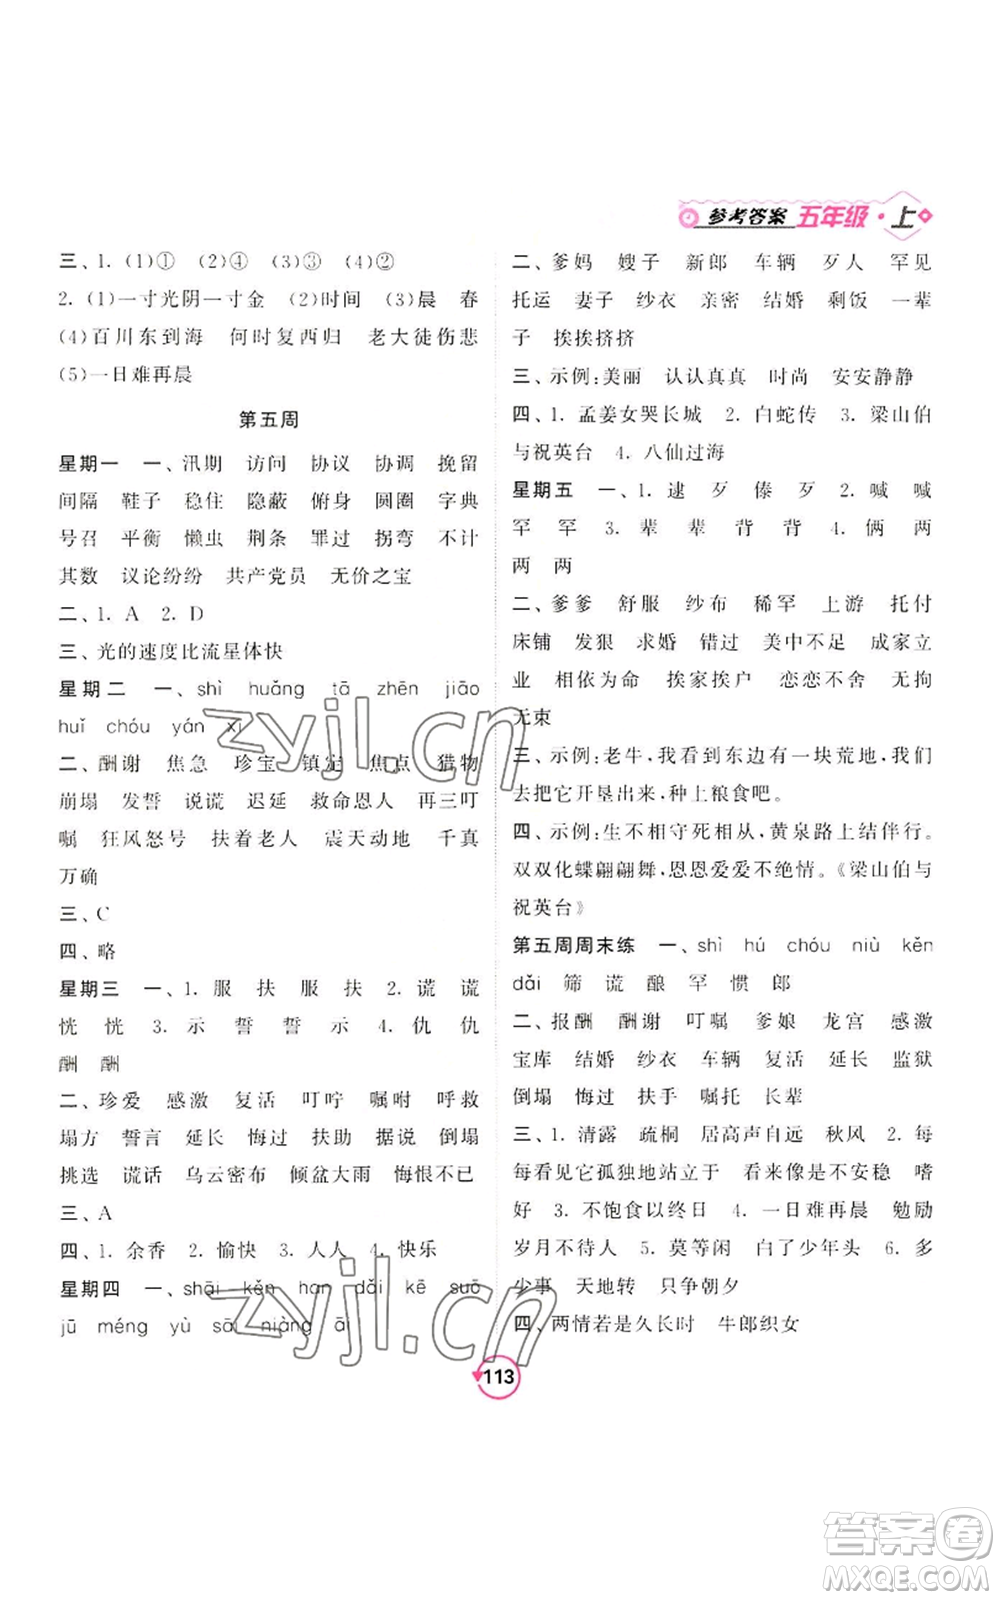 参考答案 五年级·上
三、1. (1)① (2)④ (3)③ (4)②
2. (1)一寸光阴一寸金 (2)时间 (3)晨 春
(4)百川东到海 何时复西归 老大徒伤悲
(5)一日难再晨
第五周
星期一 一、汛期 访问 协议 协调 挽留
间隔 鞋子 稳住 隐蔽 俯身 圆圈 字典
号召 平衡 懒虫 荆条 罪过 拐弯 不计
其数 议论纷纷 共产党员 无价之宝
二、1. A 2. D
三、光的速度比流星体快
星期二 一、shì huǎng tā zhēn jiāo
huǐ chóu yán xī
二、酬谢 焦急 珍宝 镇定 焦点 猎物
崩塌 发誓 说谎 迟延 救命恩人 再三叮
嘱 狂风怒号 扶着老人 震天动地 千真
万确
三、C
四、略
星期三 一、1. 服 扶 服 扶 2. 谎 谎
恍 恍 3. 示 誓 誓 示 4. 仇 仇
酬 酬
二、珍爱 感激 复活 叮咛 嘱咐 呼救
塌方 誓言 延长 悔过 扶助 据说 倒塌
挑选 谎话 乌云密布 倾盆大雨 悔恨不已
三、A
四、1. 余香 2. 愉快 3. 人人 4. 快乐
星期四 一、shāi kěn han dǎi kē suō
jū méng yù sā niàng ā
二、爹妈 嫂子 新郎 车辆 歹人 罕见
托运 妻子 纱衣 亲密 结婚 剩饭 一辈
子 挨挨挤挤
三、示例:美丽 认认真真 时尚 安安静静
四、1. 孟姜女哭长城 2. 白蛇传 3. 梁山伯
与祝英台 4. 八仙过海
星期五 一、1. 逮 歹 傣 歹 2. 喊 喊
罕 罕 3. 辈 辈 背 背 4. 俩 两
两 两
二、爹爹 舒服 纱布 稀罕 上游 托付
床铺 发狠 求婚 错过 美中不足 成家立
业 相依为命 挨家挨户 恋恋不舍 无拘
无束
三、示例:老牛,我看到东边有一块荒地,我们
去把它开垦出来,种上粮食吧。
四、示例:生不相守死相从,黄泉路上结伴行。
双双化蝶翩翩舞,恩恩爱爱不绝情。《梁山伯与
祝英台》
第五周周末练 一、shì hú chóu niù kěn
dǎi 筛 谎 酿 罕 惯 郎
二、报酬 酬谢 叮嘱 爹娘 龙宫 感激
宝库 结婚 纱衣 车辆 复活 延长 监狱
倒塌 悔过 扶手 嘱托 长辈
三、1. 清露 疏桐 居高声自远 秋风 2. 每
每看见它孤独地站立于 看来像是不安稳 嗜
好 3. 不饱食以终日 4. 一日难再晨 勉励
岁月不待人 5. 莫等闲 白了少年头 6. 多
少事 天地转 只争朝夕
四、两情若是久长时 牛郎织女
113
zyjl.cn
zyjl.cn
答案卷
MXQE.COM